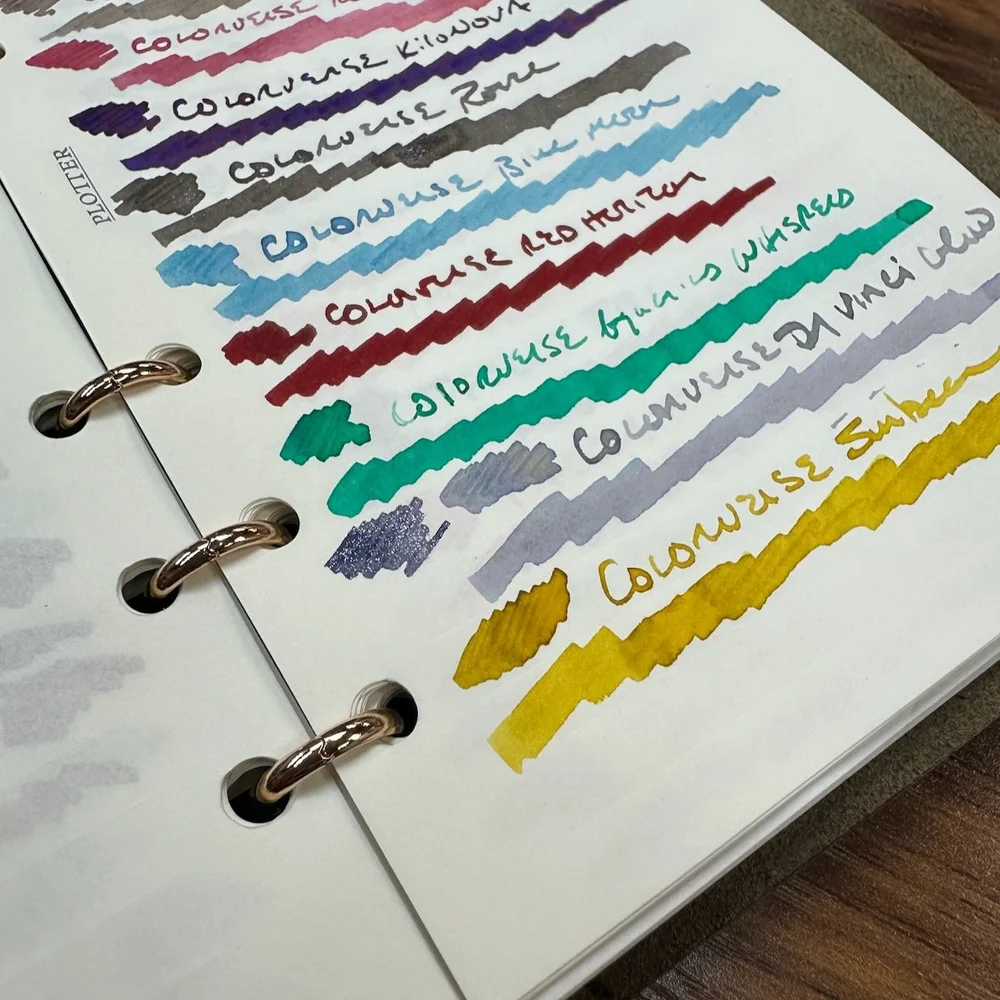 COLORVERSE
COLORVERSE KILONOVA
COLORVERSE
COLORVERSE Blue Moon
COLORVERSE RED HORIZON
COLORVERSE Aquarius WHISPERS
COLORVERSE DA Vinci
COLORVERSE
PLOTTER